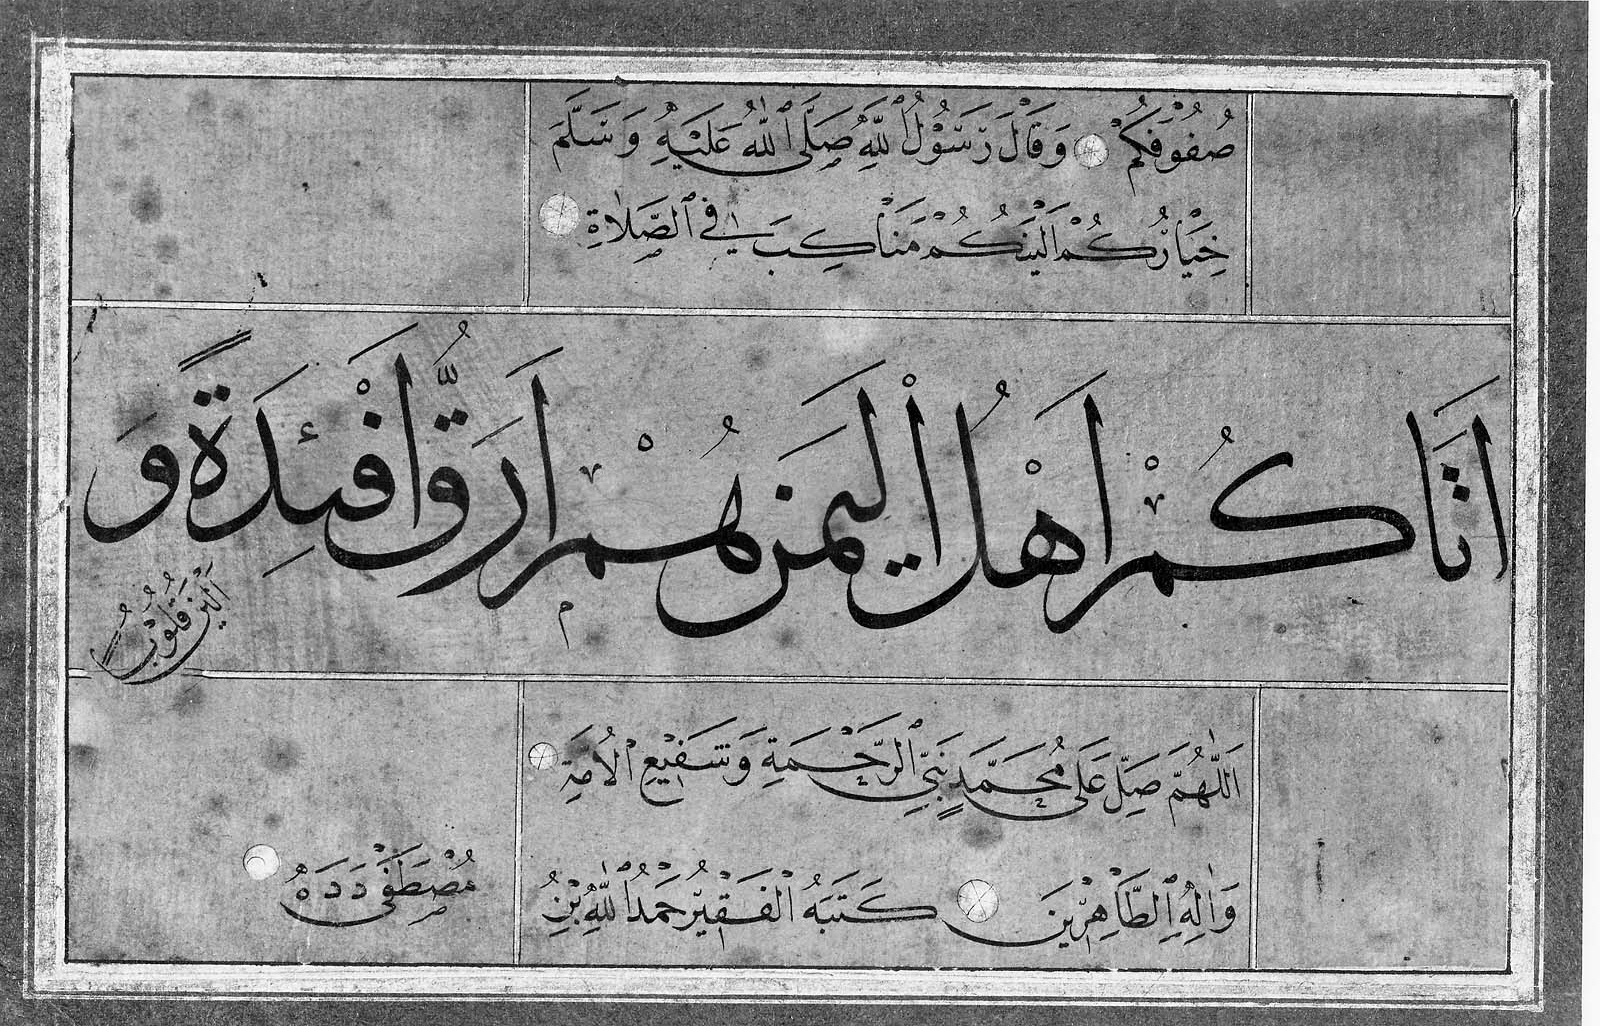 صُفُوفَكُمْ وَقَالَ رَسُولُ ٱللَّهِ صَلَّى ٱللّٰهُ عَلَيْهِ وَسَلَّمَ
خِيَارُكُمْ اَلْيَنُكُمْ مَنَاكِبَ فِي ٱلصَّلَاةِ
اَتَاكُمْ اَهْلُ الْيَمَنِ هُمْ اَرَقُّ اَفْئِدَةً وَ
اَلْيَنُ قُلُوبًا
اَللّٰهُمَّ صَلِّ عَلَى مُحَمَّدٍ نَبِيِّ ٱلرَّحْمَةِ وَشَفِيعِ الْاُمَّةِ
وَاٰلِهِ ٱلطَّاهِرِينَ كَتَبَهُ الْفَقِيرُ حَمْدُ ٱللّٰهِ بْنُ
مُصْطَفَى دَدَهْ